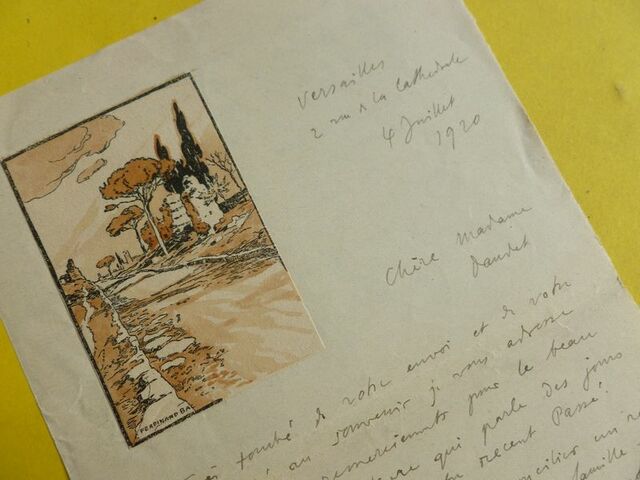 Versailles
2 rue de la Cathédrale
4 Juillet
1920
Chère Madame
Daudet
touché de votre envoi et de votre
au souvenir je vous adresse
remerciements pour le beau
qui parle des jours
recent Passé!
un
famille
FERDINAND BA